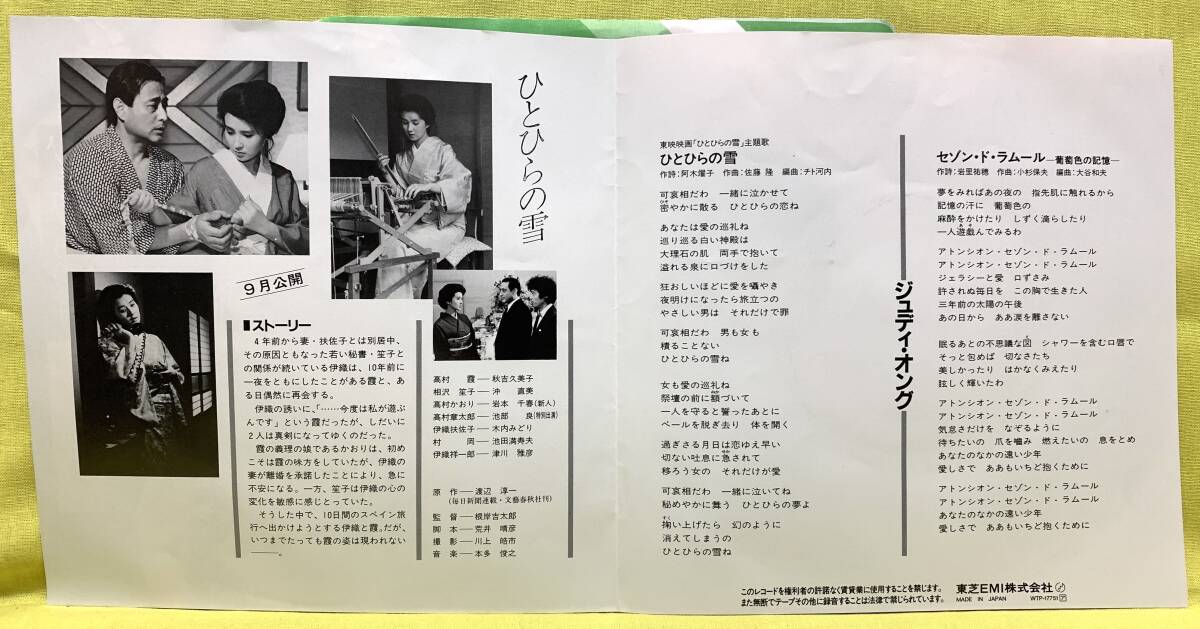 ひとひらの雪
9月公開
■ストーリー
4年前から妻・扶佐子とは別居中、
その原因ともなった若い秘書・笙子と
の関係が続いている伊織は、10年前に
一夜をともにしたことがある霞と、あ
る日偶然に再会する。
伊織の誘いに、「……今度は私が遊ぶ
んです」という霞だったが、しだいに
2人は真剣になってゆくのだった。
霞の義理の娘であるかおりは、初め
こそは霞の味方をしていたが、伊織の
妻が離婚を承諾したことにより、急に
不安になる。一方、笙子は伊織の心の
変化を敏感に感じとっていた。
そうした中で、10日間のスペイン旅
行へ出かけようとする伊織と霞。だが、
いつまでたっても霞の姿は現われない
———。
高村 霞——秋吉久美子
相沢 笙子——沖 直美
高村かおり——岩本 千春(新人)
高村章太郎——池部 良(特別出演)
伊織扶佐子——木内みどり
村 岡——池田満寿夫
伊織祥一郎——津川 雅彦
原 作——渡辺 淳一
(毎日新聞連載・文藝春秋社刊)
監 督——根岸吉太郎
脚 本——荒井 晴彦
撮 影——川上 皓市
音 楽——本多 俊之
東映映画「ひとひらの雪」主題歌
ひとひらの雪
作詩:阿木燿子 作曲:佐藤 隆 編曲:チト河内
可哀相だわ 一緒に泣かせて
密やかに散る ひとひらの恋ね
あなたは愛の巡礼ね
巡り巡る白い神殿は
大理石の肌 両手で抱いて
溢れる泉に口づけをした
狂おしいほどに愛を囁やき
夜明けになったら旅立つの
やさしい男は それだけで罪
可哀相だわ 男も女も
積ることない
ひとひらの雪ね
女も愛の巡礼ね
祭壇の前に額づいて
一人を守ると誓ったあとに
ベールを脱ぎ去り 体を開く
過ぎさる月日は恋ゆえ早い
切ない吐息に急されて
移ろう女の それだけが愛
可哀相だわ 一緒に泣いてね
秘めやかに舞う ひとひらの夢よ
掬い上げたら 幻のように
消えてしまうの
ひとひらの雪ね
ジュディ・オング
セゾン・ド・ラムール—葡萄色の記憶—
作詩:岩里祐穂 作曲:小杉保夫 編曲:大谷和夫
夢をみればあの夜の 指先肌に触れるから
記憶の汗に 葡萄色の
麻酔をかけたり しずく滴らしたり
一人遊戯んでみるわ
アトンシオン・セゾン・ド・ラムール
アトンシオン・セゾン・ド・ラムール
ジェラシーと愛 口ずさみ
許されぬ毎日を この胸で生きた人
三年前の太陽の午後
あの日から ああ涙を離さない
眠るあとの不思議な図 シャワーを含む口唇で
そっと包めば 切なさたち
美しかったり はかなくみえたり
眩しく輝いたわ
アトンシオン・セゾン・ド・ラムール
アトンシオン・セゾン・ド・ラムール
気怠さだけを なぞるように
待ちたいの 爪を嚙み 燃えたいの 息をとめ
あなたのなかの遠い少年
愛しさで ああもいちど抱くために
アトンシオン・セゾン・ド・ラムール
アトンシオン・セゾン・ド・ラムール
あなたのなかの遠い少年
愛しさで ああもいちど抱くために
このレコードを権利者の許諾なく賃貸業に使用することを禁じます。
また無断でテープその他に録音することは法律で禁じられています。
東芝EMI株式会社
MADE IN JAPAN WTP-17751 ア